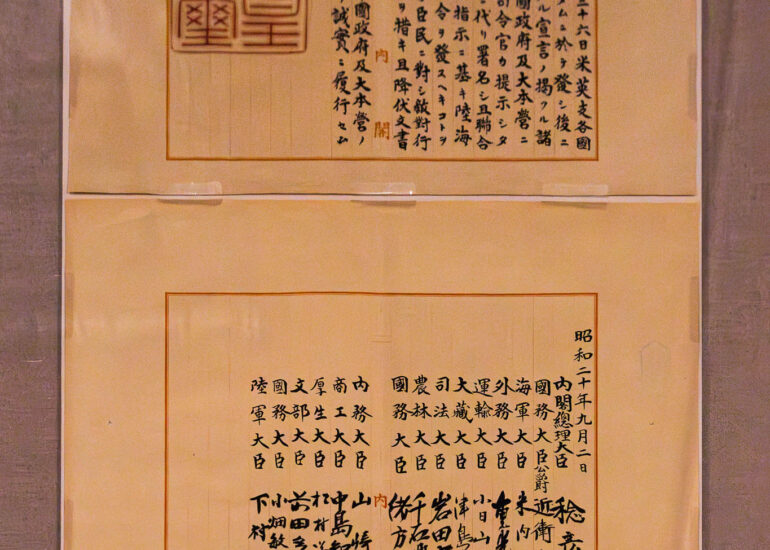 二十六日米英支各國
タムニ於テ發シ後ニ
ル宣言ノ揭クル諸
國政府及大本營ニ
司令官カ提示シタ
ニ代リ署名シ且聯合
指示ニ基キ陸海
令ヲ發スヘキコトヲ
臣民ニ對シ敵對行
ヲ措キ且降伏文書
內閣
國政府及大本營ノ
誠實ニ履行セム
皇
璽
昭和二十年九月二日
內閣總理大臣 稔彦
國務大臣公爵 近衛
海軍大臣 米内
外務大臣 重光
運輸大臣 小日山
大藏大臣 津島
司法大臣 岩田
農林大臣 千石
國務大臣 緒方
內
內務大臣 山崎
商工大臣 中島
厚生大臣 松村
文部大臣 前田
國務大臣 小畑敏
陸軍大臣 下村